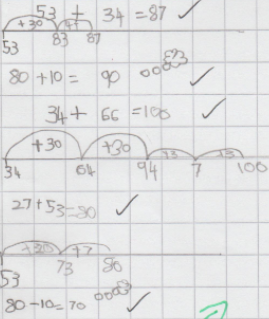 53 + 34 = 87
+30
53 83 87
80 + 10 = 90
34 + 66 = 100
+30 +30
34 64 94 7 100
27 + 53 = 80
+20 +7
53 73 80
80 - 10 = 70